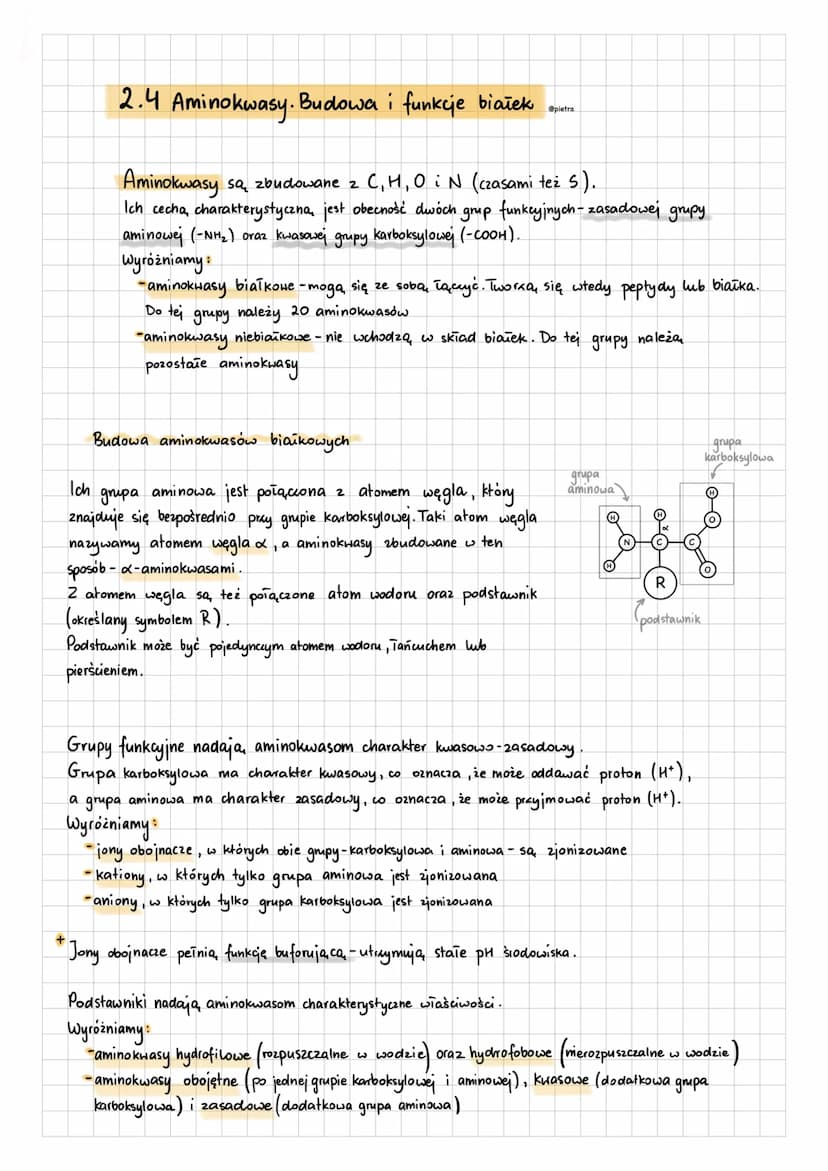 2.4 Aminokwasy. Budowa i funkcje białek @pietra
Aminokwasy są zbudowane z C, H, O i N (czasami też S).
Ich cechą charakterystyczną jest obecność dwóch grup funkcyjnych - zasadowej grupy
aminowej (-NH₂) oraz kwasowej grupy karboksylowej (-COOH).
Wyróżniamy:
- aminokwasy białkowe - mogą się ze sobą łączyć. Tworzą się wtedy peptydy lub białka.
Do tej grupy należy 20 aminokwasów
- aminokwasy niebiałkowe - nie wchodzą w skład białek. Do tej grupy należą
pozostałe aminokwasy
Budowa aminokwasów białkowych
Ich grupa aminowa jest połączona z atomem węgla, który
znajduje się bezpośrednio przy grupie karboksylowej. Taki atom węgla
nazywamy atomem węgla α, a aminokwasy zbudowane w ten
sposób - α-aminokwasami.
Z atomem węgla są też połączone atom wodoru oraz podstawnik
(określany symbolem R).
Podstawnik może być pojedynczym atomem wodoru, łańcuchem lub
pierścieniem.
grupa
karboksylowa
grupa
aminowa
H
H H O
α
N C C
H O
R
podstawnik
Grupy funkcyjne nadają aminokwasom charakter kwasowo-zasadowy.
Grupa karboksylowa ma charakter kwasowy, co oznacza, że może oddawać proton (H⁺),
a grupa aminowa ma charakter zasadowy, co oznacza, że może przyjmować proton (H⁺).
Wyróżniamy:
- jony obojnacze, w których obie grupy - karboksylowa i aminowa - są zjonizowane
- kationy, w których tylko grupa aminowa jest zjonizowana
- aniony, w których tylko grupa karboksylowa jest zjonizowana
+ Jony obojnacze pełnią funkcję buforującą - utrzymują stałe pH środowiska.
Podstawniki nadają aminokwasom charakterystyczne właściwości.
Wyróżniamy:
- aminokwasy hydrofilowe (rozpuszczalne w wodzie) oraz hydrofobowe (nierozpuszczalne w wodzie)
- aminokwasy obojętne (po jednej grupie karboksylowej i aminowej), kwasowe (dodatkowa grupa
karboksylowa) i zasadowe (dodatkowa grupa aminowa)